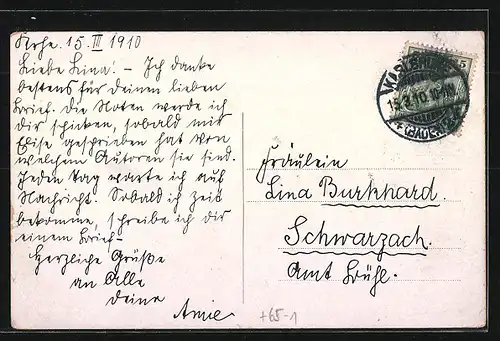 Krhe 15. III 1910
Liebe Lina! – Ich danke
bestens für deinen lieben
Brief. Die Noten werde ich
dir schicken, sobald mir
Elise geschrieben hat von
welchem Autoren sie sind.
Jeden Tag warte ich auf
Nachricht. Sobald ich Zeit
bekomme, schreibe ich dir
einen Brief –
Herzliche Grüße
an Alle
deine
Fräulein
Lina Burkhard.
Schwarzach.
Amt Bühl.
+65-1
5
KARLSRUHE
(BADEN)